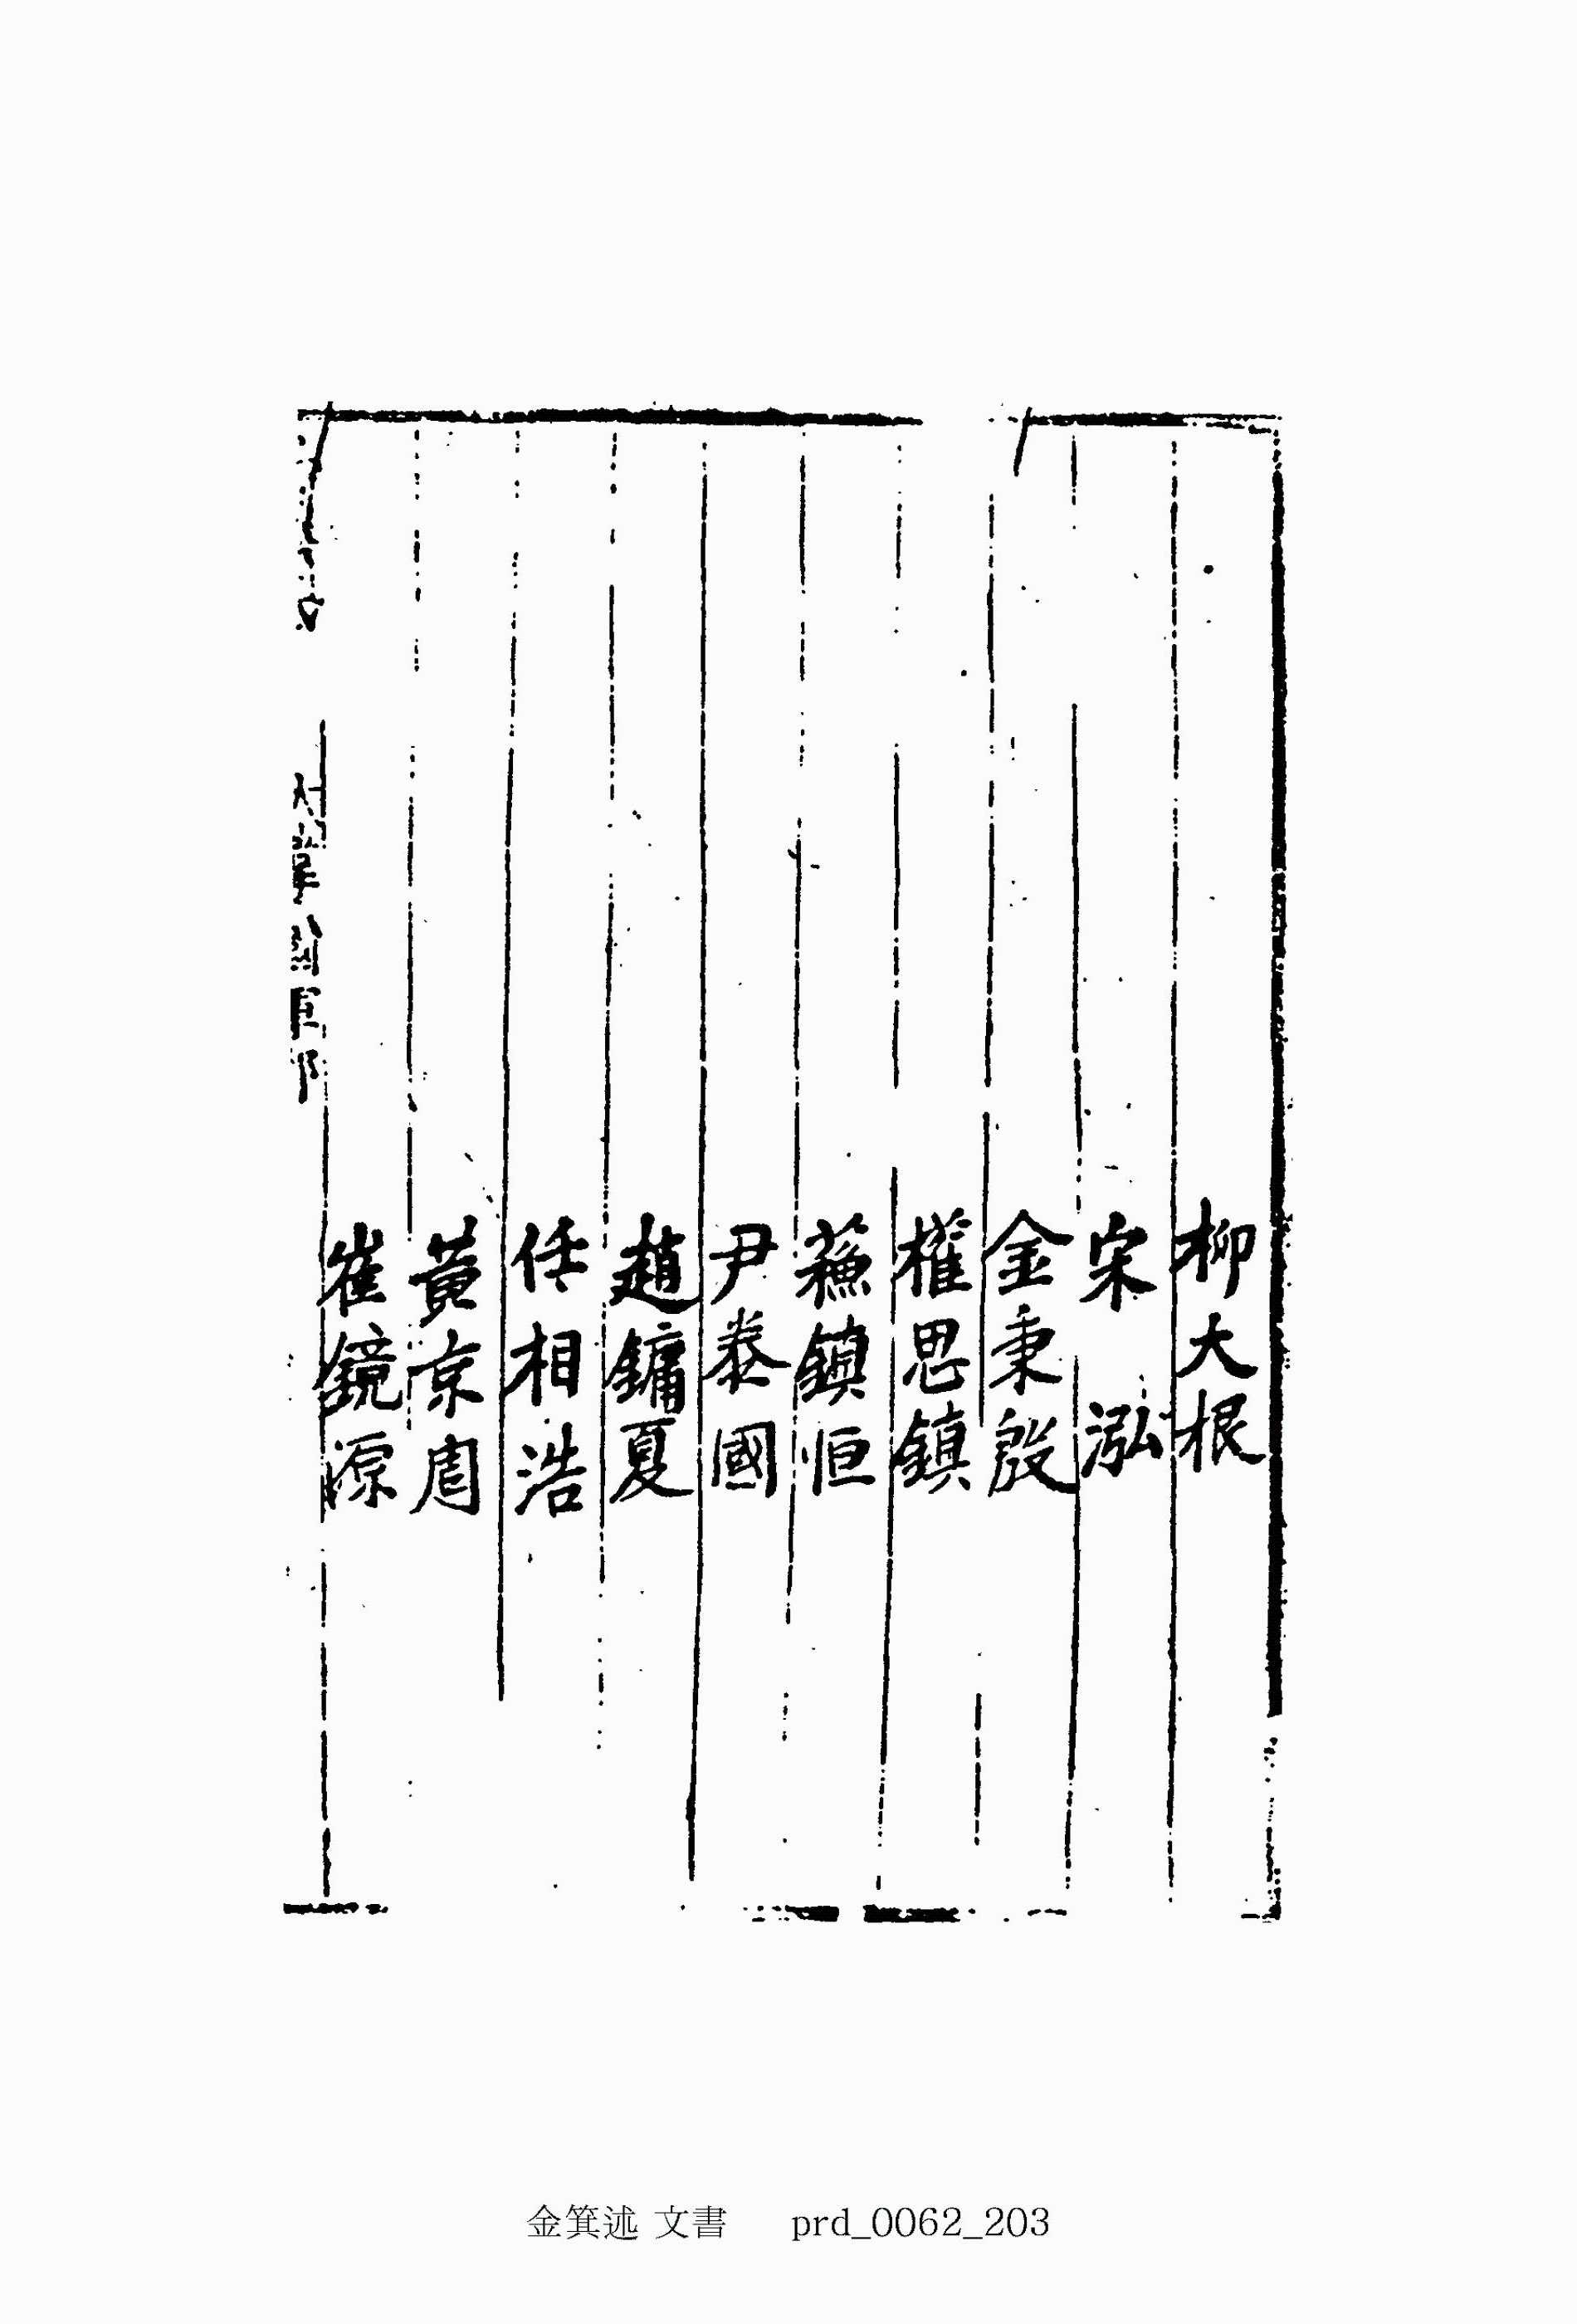 柳大根
宋泓
金秉殷
權思鎮
蘇鎮恒
尹泰國
趙鏞夏
任相浩
黃京周
崔鏡源
金箕述 文書 prd_0062_203